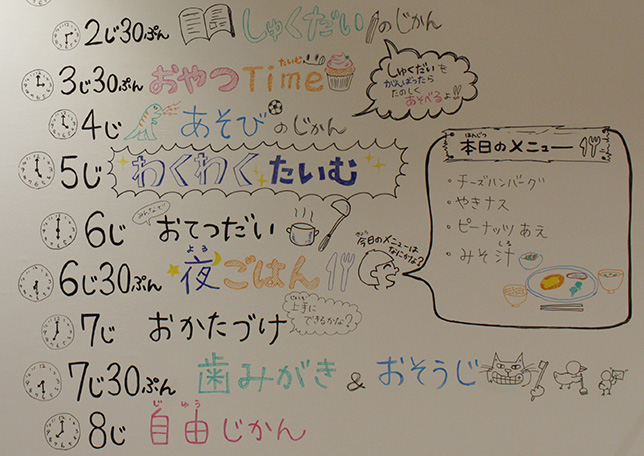 2じ30ぷん しゅくだいのじかん
3じ30ぷん おやつTime
たいむ
しゅくだいも
がんばったら
たのしく
あそべるよ!!
4じ あそびのじかん
5じ わくわくたいむ
6じ みんなで おてつだい
きょう
今日のメニューは
なにかな?
6じ30ぷん 夜ごはん
よる
7じ おかたづけ
じょうず
上手に
できるかな?
7じ30ぷん 歯みがき & おそうじ
は
8じ 自由じかん
じゆう
ほんじつ
本日のメニュー
・チーズハンバーグ
・やきナス
・ピーナッツあえ
・みそ汁
しる